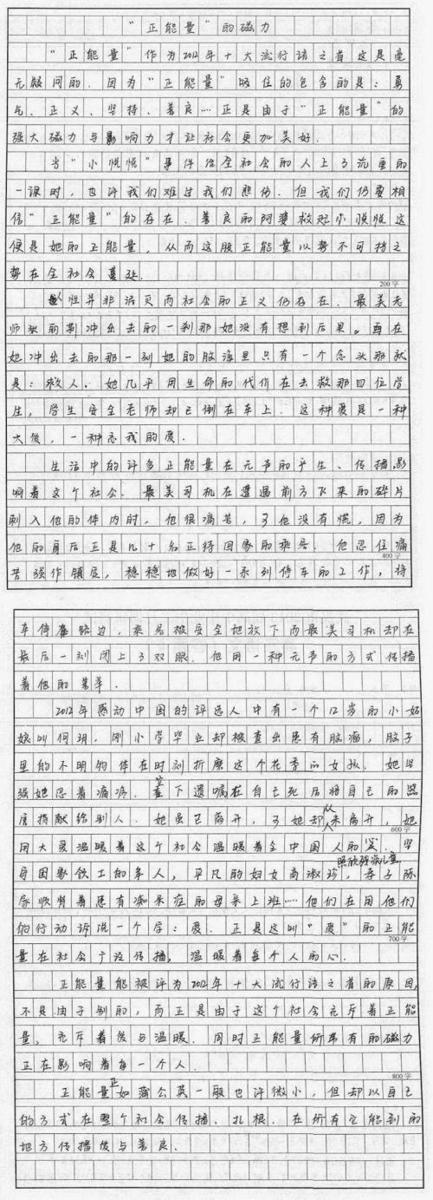 “正能量”的磁力
“正能量”作为2012年十大流行语之首这是毫
无疑问的。因为“正能量”吸住的包含的是：勇
气、正义、坚持、善良…正是由于“正能量”的
强大磁力与影响力才让社会更加美好。
当“小悦悦”事件给全社会的人上了沉重的
一课时，也许我们难过我们悲伤。但我们仍要相
信“正能量”的存在。善良的阿婆救起小悦悦这
便是她的正能量，从而这股正能量以势不可挡之
势在全社会蔓延。
200字
人性并非泯灭而社会的正义仍存在。最美老
师张丽莉冲出去的一刹那她没有想到后果。而在
她冲出去的那一刻她的脑海里只有一个念头那就
是：救人。她几乎用生命的代价在去救那四位学
生，学生安全老师却已倒在车上。这种爱是一种
大爱，一种忘我的爱。
生活中的许多正能量在无声的产生、传播，影
响着这个社会。最美司机在遭遇前方飞来的碎片
刺入他的体内时，他很痛苦，可他没有慌，因为
他的背后正是几十名正待回家的乘客。他忍住痛
400字
苦强作镇定，稳稳地做好一系列停车的工作，将
车停在路边，乘客被安全地放下而最美司机却在
最后一刻闭上了双眼。他用一种无声的方式传播
着他的善举。
2012年感动中国的评选人中有一个12岁的小姑
娘叫何玥，刚小学毕业却被查出患有脑瘤，脑子
里的不明物体在时刻折磨这个花季的女孩。她坚
强她忍着痛疼，签下遗嘱在自己死后将自己的器
官捐献给别人。她虽已离开，可她却从未离开，她
600字
用大爱温暖着这个社会温暖着全中国人的心。坚
照顾弱孤儿童
守因家铁工的军人，平凡的妇女高淑珍，孝子陈
斌强背着患有痴呆症的母亲上班…他们在用他们
的行动诉说一个字：爱。正是这叫“爱”的正能
700字
量在社会广泛传播，温暖着每个人的心。
正能量能被评为2012年十大流行语之首的原因，
不是由于别的，而正是由于这个社会充斥着正能
量，充斥着爱与温暖。同时正能量所带有的磁力
正在影响着每一个人。
800字
正能量正如蒲公英一般也许微小，但却以自己
的方式在整个社会传播、扎根。在所有它能到的
地方传播爱与善良。